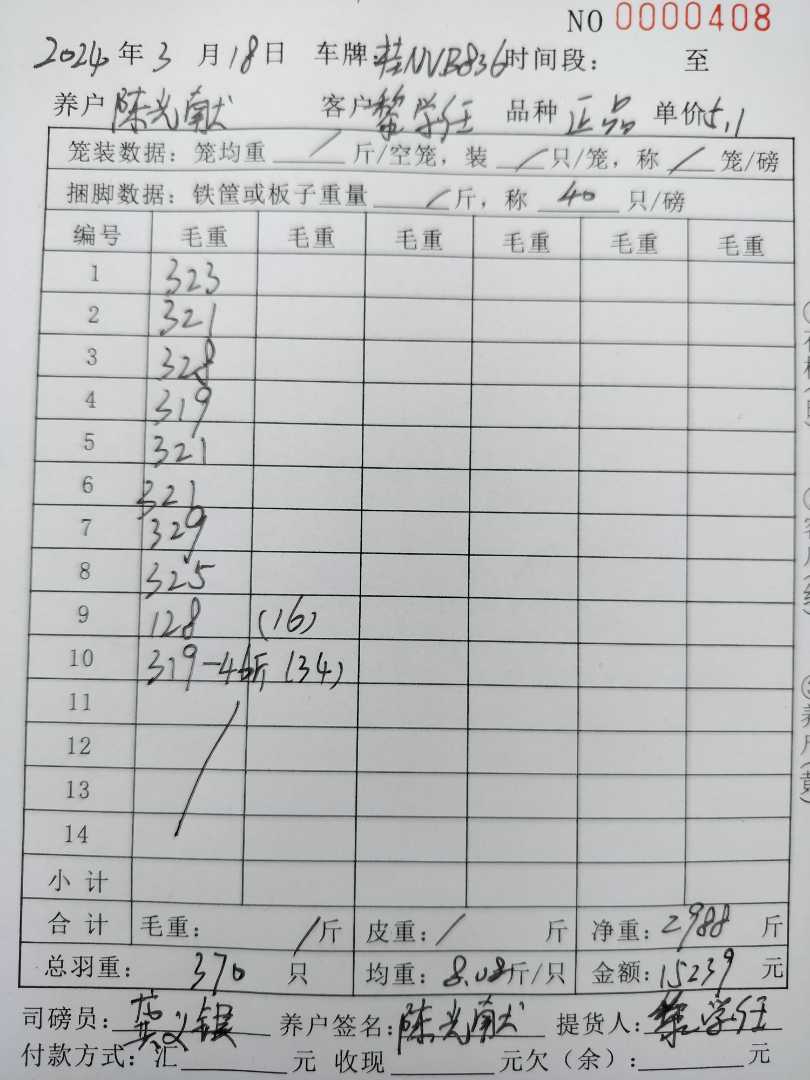 NO 0000408
2024年3月18日 车牌:桂NVB836时间段: 至
养户陈光献 客户黎学任 品种 正品 单价5.1
笼装数据: 笼均重 / 斤/空笼, 装 / 只/笼, 称 / 笼/磅
捆脚数据: 铁筐或板子重量 / 斤, 称 40 只/磅
编号 毛重 毛重 毛重 毛重 毛重 毛重
1 323
2 321
3 328
4 319
5 321
6 321
7 329
8 325
9 128 (16)
10 319-46斤 (34)
11
12
13
14
小计
合计 毛重: / 斤 皮重: / 斤 净重: 2988 斤
总羽重: 370 只 均重: 8.08斤/只 金额: 15239 元
司磅员: 养户签名: 陈光献 提货人: 黎学任
付款方式: 汇 元 收现 元欠(余): 元